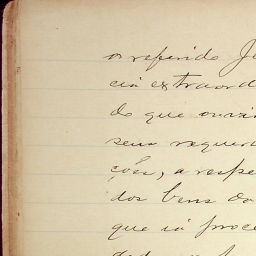 o referido Ju
cia extraord
do que ouvi
seus requer
ções, a respe
dos bens do
que ia proce